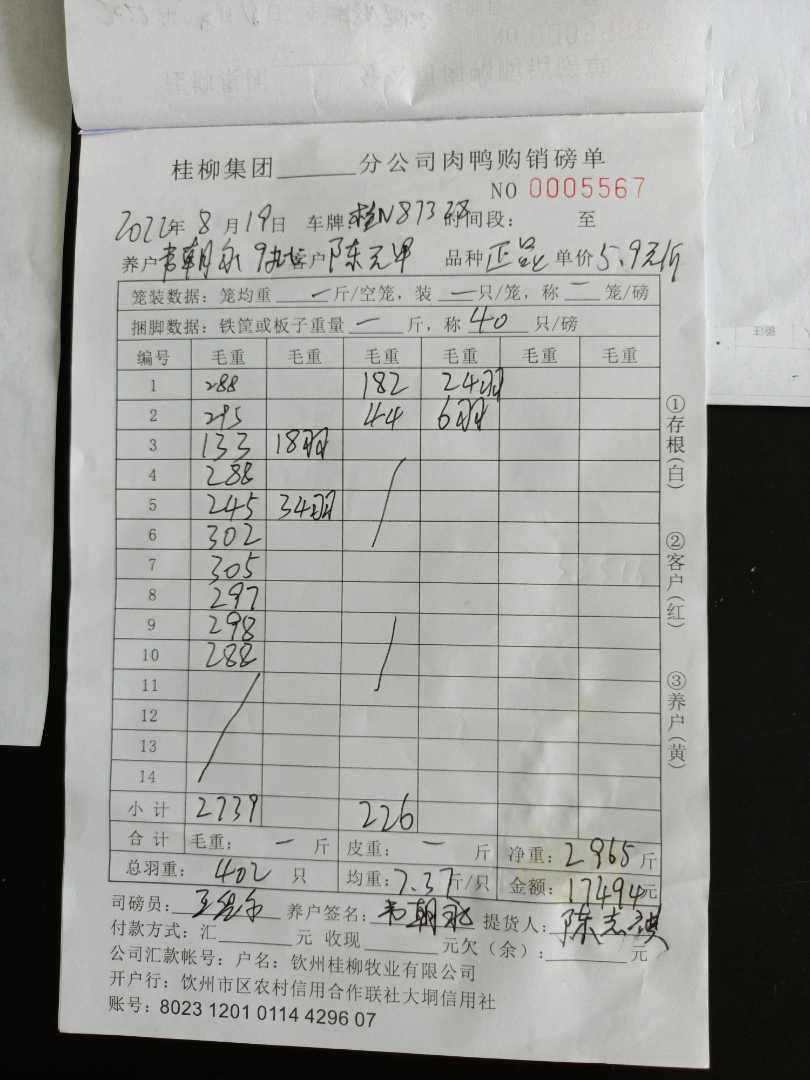 桂柳集团______分公司肉鸭购销磅单
NO 0005567
2022年 8 月 19日 车牌:桂N87338 时间段: 至
养户 韦朝永 客户 陈元甲 品种 正品 单价 5.9元/斤
笼装数据: 笼均重 一 斤/空笼, 装 一 只/笼, 称 一 笼/磅
捆脚数据: 铁筐或板子重量 一 斤, 称 40 只/磅
编号 毛重 毛重 毛重 毛重 毛重 毛重
1 288 182 24羽
2 295 44 6羽
3 133 18羽
4 288
5 245 34羽
6 302
7 305
8 297
9 298
10 288
11
12
13
14
小计 2739 226
合计 毛重: 一 斤 皮重: 一 斤 净重: 2965 斤
总羽重: 402 只 均重: 7.37斤/只 金额: 17494元
司磅员: 养户签名: 韦朝永 提货人: 陈志祺
付款方式: 汇______元 收现______元欠(余):______元
公司汇款帐号: 户名: 钦州桂柳牧业有限公司
开户行: 钦州市区农村信用合作联社大垌信用社
账号: 8023 1201 0114 4296 07
①存根(白) ②客户(红) ③养户(黄)